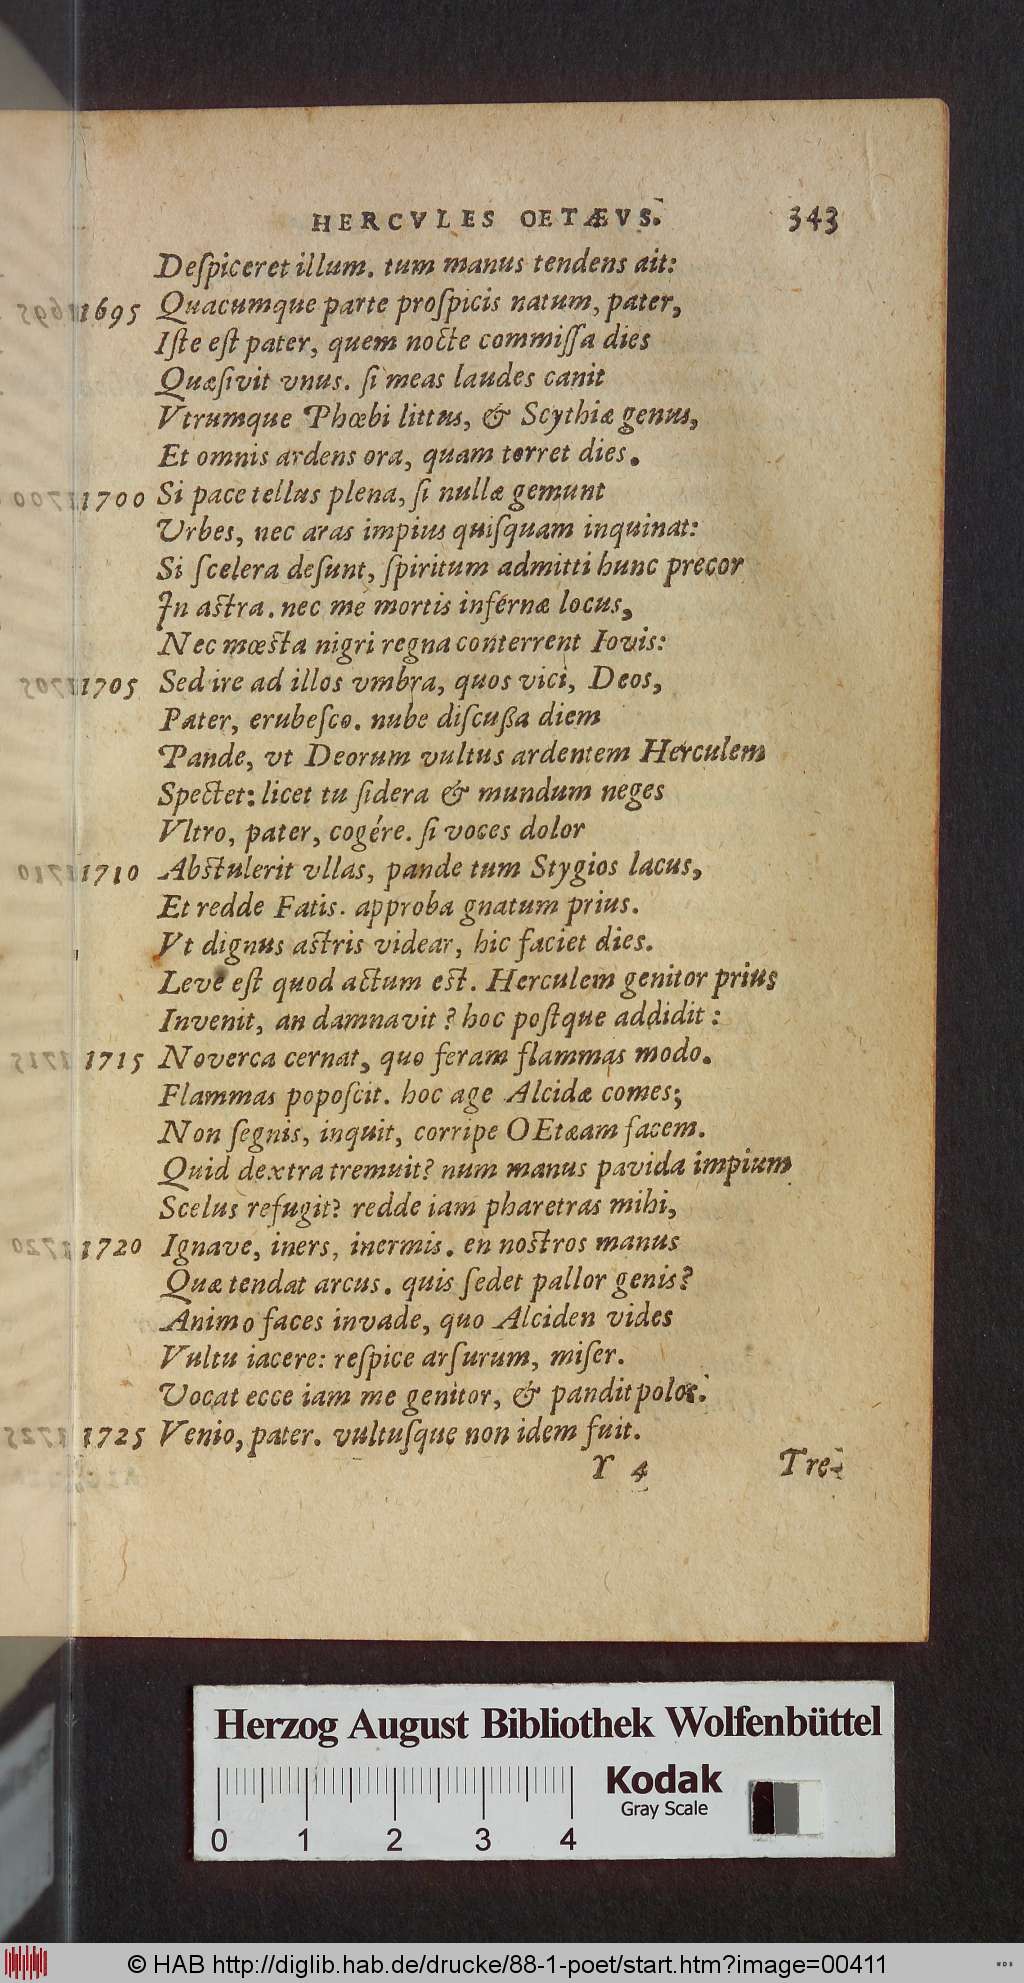 HERCVLES OETÆVS. 343
Deſpiceret illum. tum manus tendens ait:
1695 Quacumque parte proſpicis natum, pater,
Iſte eſt pater, quem nocte commiſſa dies
Quæſivit vnus. ſi meas laudes canit
Vtrumque Phœbi littus, & Scythiæ genus,
Et omnis ardens ora, quam torret dies.
1700 Si pace tellus plena, ſi nullæ gemunt
Urbes, nec aras impius quiſquam inquinat:
Si ſcelera deſunt, ſpiritum admitti hunc precor
In aſtra. nec me mortis infernæ locus,
Nec mœſta nigri regna conterrent Iovis:
1705 Sed ire ad illos vmbra, quos vici, Deos,
Pater, erubeſco. nube diſcußa diem
Pande, vt Deorum vultus ardentem Herculem
Spectet: licet tu ſidera & mundum neges
Vltro, pater, cogére. ſi voces dolor
1710 Abſtulerit vllas, pande tum Stygios lacus,
Et redde Fatis. approba gnatum prius.
Vt dignus aſtris videar, hic faciet dies.
Leve eſt quod actum eſt. Herculem genitor prius
Invenit, an damnavit? hoc poſtque addidit:
1715 Noverca cernat, quo feram flammas modo.
Flammas popoſcit. hoc age Alcidæ comes;
Non ſegnis, inquit, corripe OEtæam facem.
Quid dextra tremuit? num manus pavida impium
Scelus refugit? redde iam pharetras mihi,
1720 Ignave, iners, inermis. en noſtros manus
Quæ tendat arcus. quis ſedet pallor genis?
Animo faces invade, quo Alciden vides
Vultu iacere: reſpice arſurum, miſer.
Vocat ecce iam me genitor, & pandit polos.
1725 Venio, pater. vultuſque non idem fuit.
Y 4 Tre-
Herzog August Bibliothek Wolfenbüttel
Kodak
Gray Scale
0 1 2 3 4
© HAB http://diglib.hab.de/drucke/88-1-poet/start.htm?image=00411